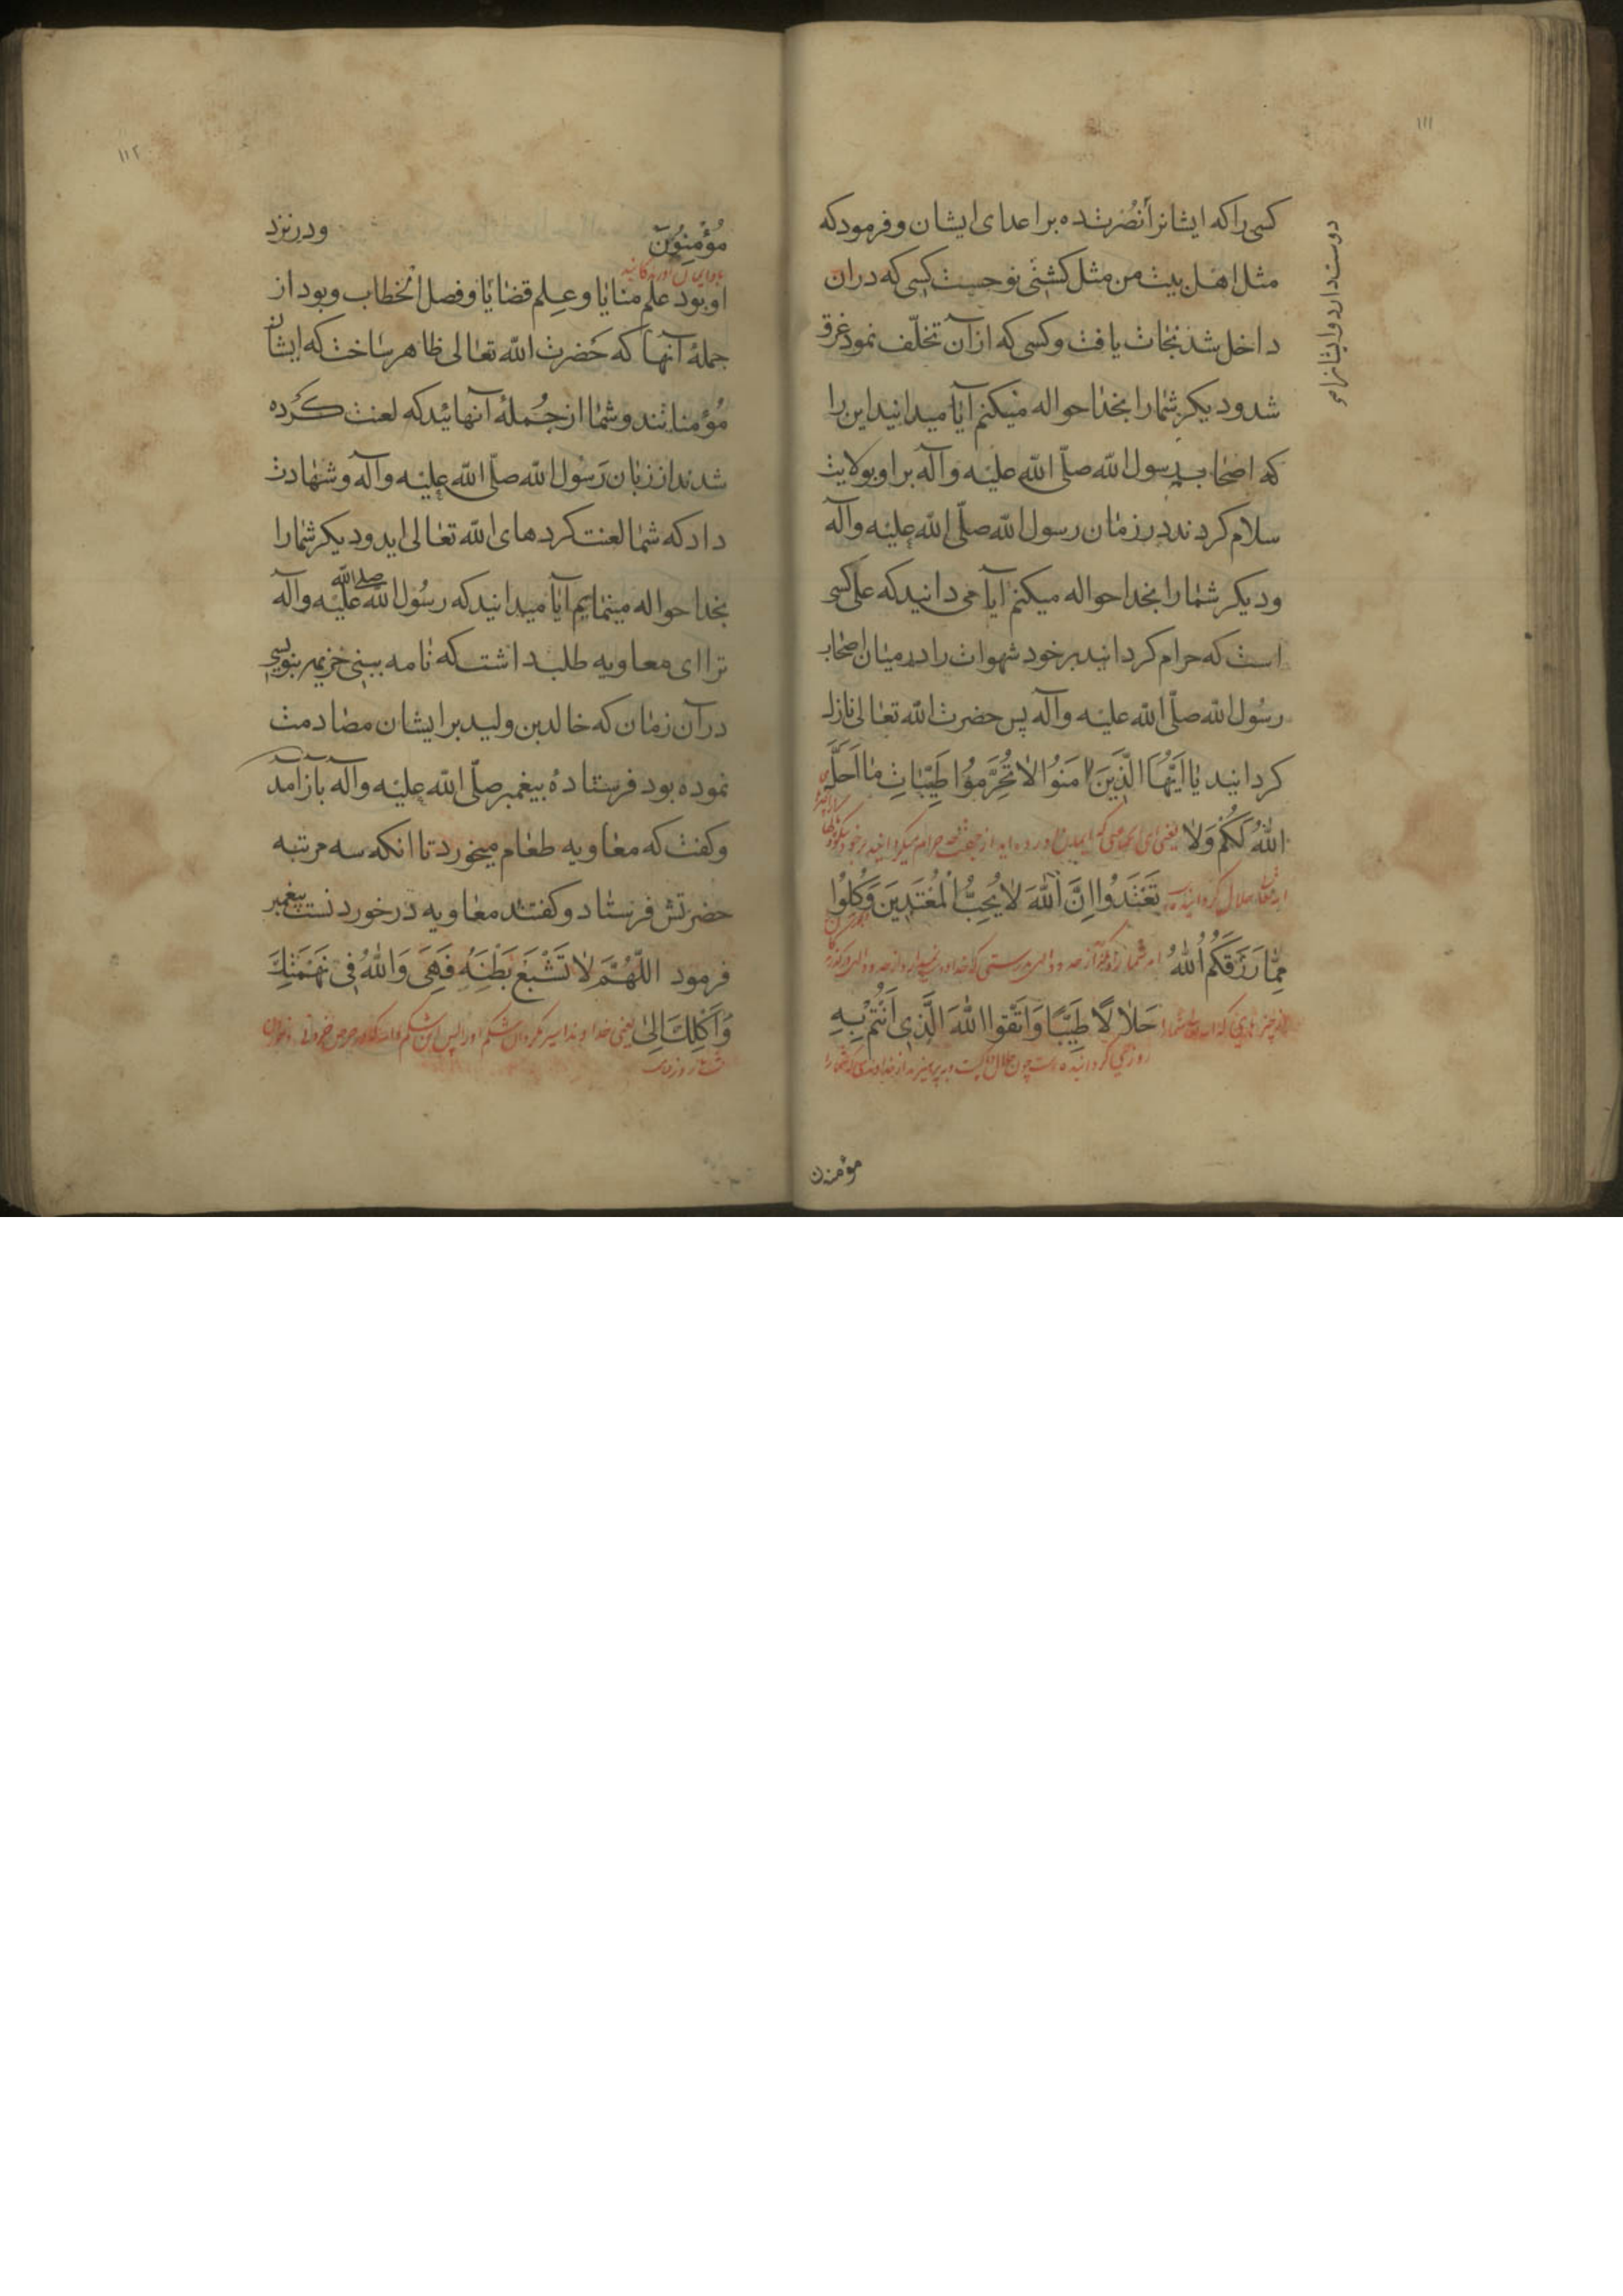 ۱۱۱
کسی را که ایشانرا نصرت ده بر اعدای ایشان و فرمود که
دوست دارد و ایشانرا
مثل اهل بیت من مثل کشتی نوحست کسی که دران
داخل شد نجات یافت و کسی که از آن تخلّف نمود غرق
شد و دیکر شمارا بخدا حواله میکنم آیا میدانید این را
که اصحاب رسول الله صلّی الله علیه وآله بر او بولایت
سلام کردند در زمان رسول الله صلّی الله علیه وآله
و دیکر شمارا بخدا حواله میکنم آیا می دانید که علی کسی
است که حرام کردانید بر خود شهوات را در میان اصحاب
رسول الله صلّی الله علیه وآله پس حضرت الله تعالی نازل
کردانید یٰا اَیُّهَا الَّذِینَ اٰمَنُوا لاٰ تُحَرِّمُوا طَیِّبٰاتِ مٰا اَحَلَّ
اللهُ لَکُمْ وَلاٰ یعنی ای جماعتی که ایمان آورده اید از جهت چه حرام میکردانید بر خود
تَعْتَدُوا اِنَّ اللهَ لاٰ یُحِبُّ الْمُعْتَدِینَ وَکُلُوا
مِمّٰا رَزَقَکُمُ اللهُ
حَلاٰلاً طَیِّبًا وَاتَّقُوا اللهَ الَّذِی اَنْتُمْ بِهِ
روزی کردانیده است چون حلال
مؤمنون
۱۱۲
مُؤْمِنُونَ ودر نزد
او بود علم منایا و علم قضایا و فصل الخطاب و بود از
جملهٔ آنها که حَضرت الله تعالی ظاهر ساخت که ایشان
مُؤمنانند و شما از جُملهٔ آنهائید که لعنت کَرده
شدند از زبان رَسُول الله صلّی الله علیه وآله و شهادت
داد که شما لعنت کردهای الله تعالی اید و دیکر شمارا
بخدا حواله مینمایم آیا میدانید که رسُول الله صلی الله علیه وآله
ترا ای معاویه طلب داشت که نامه ببنی خزیمه بنویسی
در آن زمان که خالد بن ولید بر ایشان مصادمت
نموده بود فرستادهٔ پیغمبر صلّی الله علیه وآله باز آمد
و کفت که معاویه طعام میخورد تا انکه سه مرتبه
حضرتش فرستاد و کفتند معاویه در خوردنست پیغمبر
فرمود اللّٰهُمَّ لاٰ تَشْبَعْ بَطْنَهُ فَهِیَ وَاللهُ فِی نَهْمَتِكَ
وَاَکْلِكَ اِلیٰ یعنی خداوندا سیر مکردان شکم اورا پس این شکم